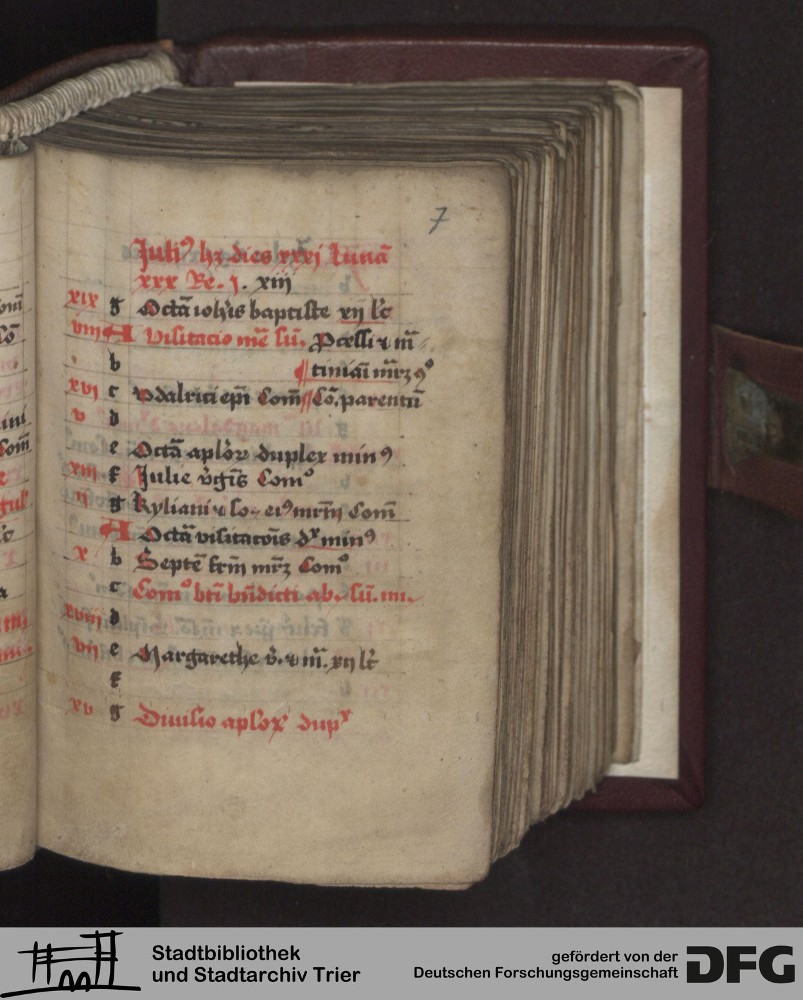 7
Juli9 hz dies xxxj Lunā
xxx Re. j. xiij
xix g Octā ioh'is baptiste xij lc̄
viij A Visitacio me sū. Pcessi & m̄
b tiniāi mr̄z 9o
xvj c vdalrici ep̄i Com̄ Cō. parentū
v d
e Octā aplōr duplex min9
xiij f Julie v̄gīs Com̄o
ij g Kyliani & so. ei9 mr̄m Com̄
A Octā visitacōis dx min9
x b Septē fr̄m mr̄z Com̄o
c Com̄o btī bn̄dicti ab. sū. m.
xviij d
vij e Margarethe v̄. & m̄. xij lc̄
f
xv g Diuisio aplōx dupx
Stadtbibliothek
und Stadtarchiv Trier
gefördert von der
Deutschen Forschungsgemeinschaft
DFG